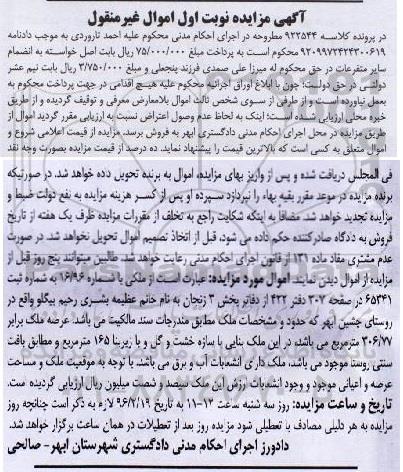 آگهی مزایده نوبت اول اموال غیرمنقول
در پرونده کلاسه ۹۲۲۵۴۴ مطروحه در اجرای احکام مدنی محکوم علیه احمد تاروردی به موجب دادنامه
۹۲۰۹۹۷۲۴۲۴۳۰۰۶۱۹ محکوم است به پرداخت مبلغ ۷۵/۰۰۰/۰۰۰ ریال بابت اصل خواسته به انضمام
سایر متفرعات در حق محکوم له میرزا علی صمدی فرزند پنجعلی و مبلغ ۳/۷۵۰/۰۰۰ ریال بابت نیم عشر
دولتی در حق دولت؛ چون با ابلاغ اوراق اجرائیه محکوم علیه هیچ اقدامی در جهت پرداخت محکوم به
بعمل نیاورده است و از طرفی از سوی شخص ثالث اموال بلامعارض معرفی و توقیف گردیده و از طریق
خبره محلی ارزیابی شده است؛ اینک به لحاظ عدم وصول اعتراض نسبت به ارزیابی مقرر گردید اموال از
طریق مزایده در محل اجرای احکام مدنی دادگستری ابهر به فروش برسد. مزایده از قیمت اعلامی شروع و
اموال متعلق به کسی است که بالاترین قیمت را پیشنهاد نماید. ده درصد از قیمت مزایده بصورت وجه نقد
فی المجلس دریافت شده و پس از واریز بهای مزایده، اموال به برنده تحویل داده خواهد شد. در صورتیکه
برنده مزایده در موعد مقرر بقیه بهاء را نپردازد سپرده او پس از کسر هزینه مزایده به نفع دولت ضبط و
مزایده تجدید خواهد شد. مضافا به اینکه شکایت راجع به تخلف از مقررات مزایده ظرف یک هفته از تاریخ
فروش به دادگاه صادرکننده حکم داده می شود، قبل از اتخاذ تصمیم اموال تحویل نخواهد شد. در صورت
عدم مشتری مفاد ماده ۱۳۱ از قانون اجرای احکام مدنی رعایت خواهد شد. طالبین میتوانند پنج روز قبل از
مزایده از اموال دیدن نمایند. اموال مورد مزایده: عبارت است از ملکی با شماره ۱۶/۹۶ به شماره ثبت
۶۵۳۴۱ در صفحه ۳۰۷ دفتر ۴۲۲ از دفاتر بخش ۳ زنجان به نام خانم عظیمه بشری رحیم بیگلو واقع در
روستای چشین ابهر که حدود و مشخصات ملک مطابق مندرجات سند مالکیت می باشد. عرصه ملک برابر
۳۰۶/۷۷ مترمربع می باشد، در این ملک بنایی با سازه خشت و گل و با زیربنا ۱۶۵ مترمربع و مطابق بافت
سنتی روستا موجود می باشد، ملک دارای انشعابات آب و برق می باشد. با توجه به موقعیت ملک و مساحت
عرصه و اعیانی موجود و وجود انشعابات ارزش این ملک سیصد و شصت میلیون ریال ارزیابی گردیده است.
تاریخ و ساعت مزایده: روز سه شنبه ساعت ۱۳-۱۱ به تاریخ ۹۶/۲/۱۹ لازم به ذکر است چنانچه روز
مزایده به هر دلیلی مصادف با تعطیلی شود روز بعد از تعطیلات در همان ساعت برگزار خواهد شد.
دادورز اجرای احکام مدنی دادگستری شهرستان ابهر- صالحی